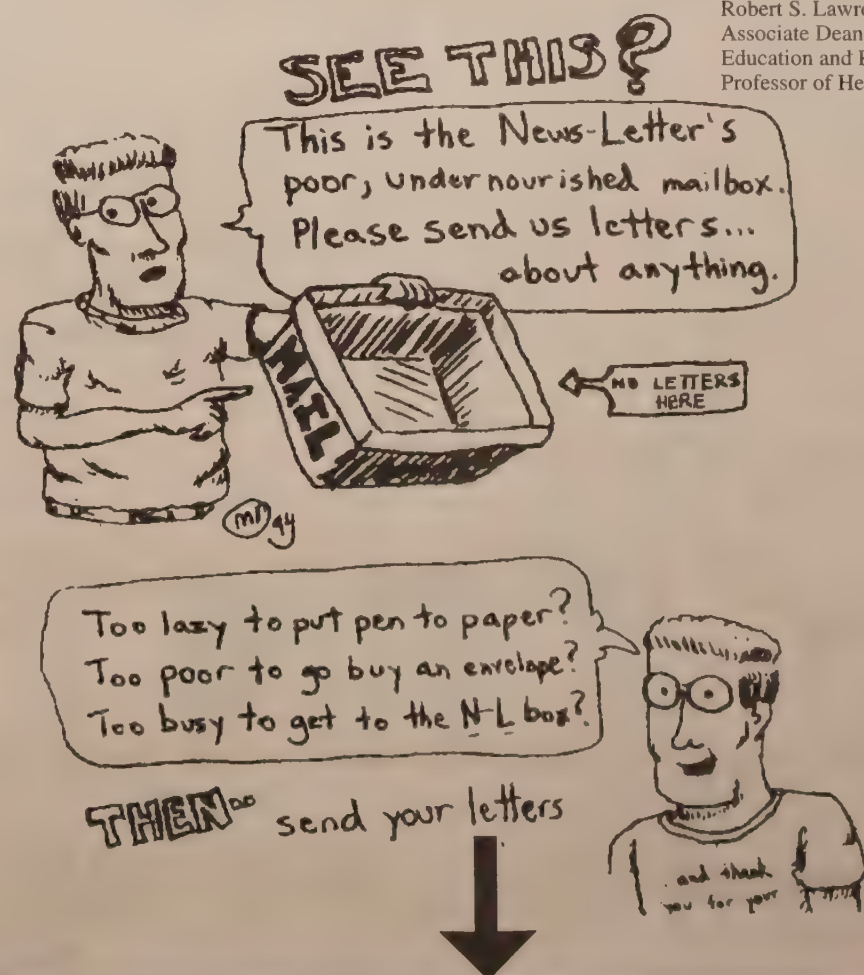 Robert S. Lawre
Associate Dean
Education and
Professor of He
SEE THIS?
This is the News-Letter's
poor, undernourished mailbox.
Please send us letters...
about anything.
MAIL
NO LETTERS
HERE
Too lazy to put pen to paper?
Too poor to go buy an envelope?
Too busy to get to the N-L box?
THEN... send your letters
and thank
you for your